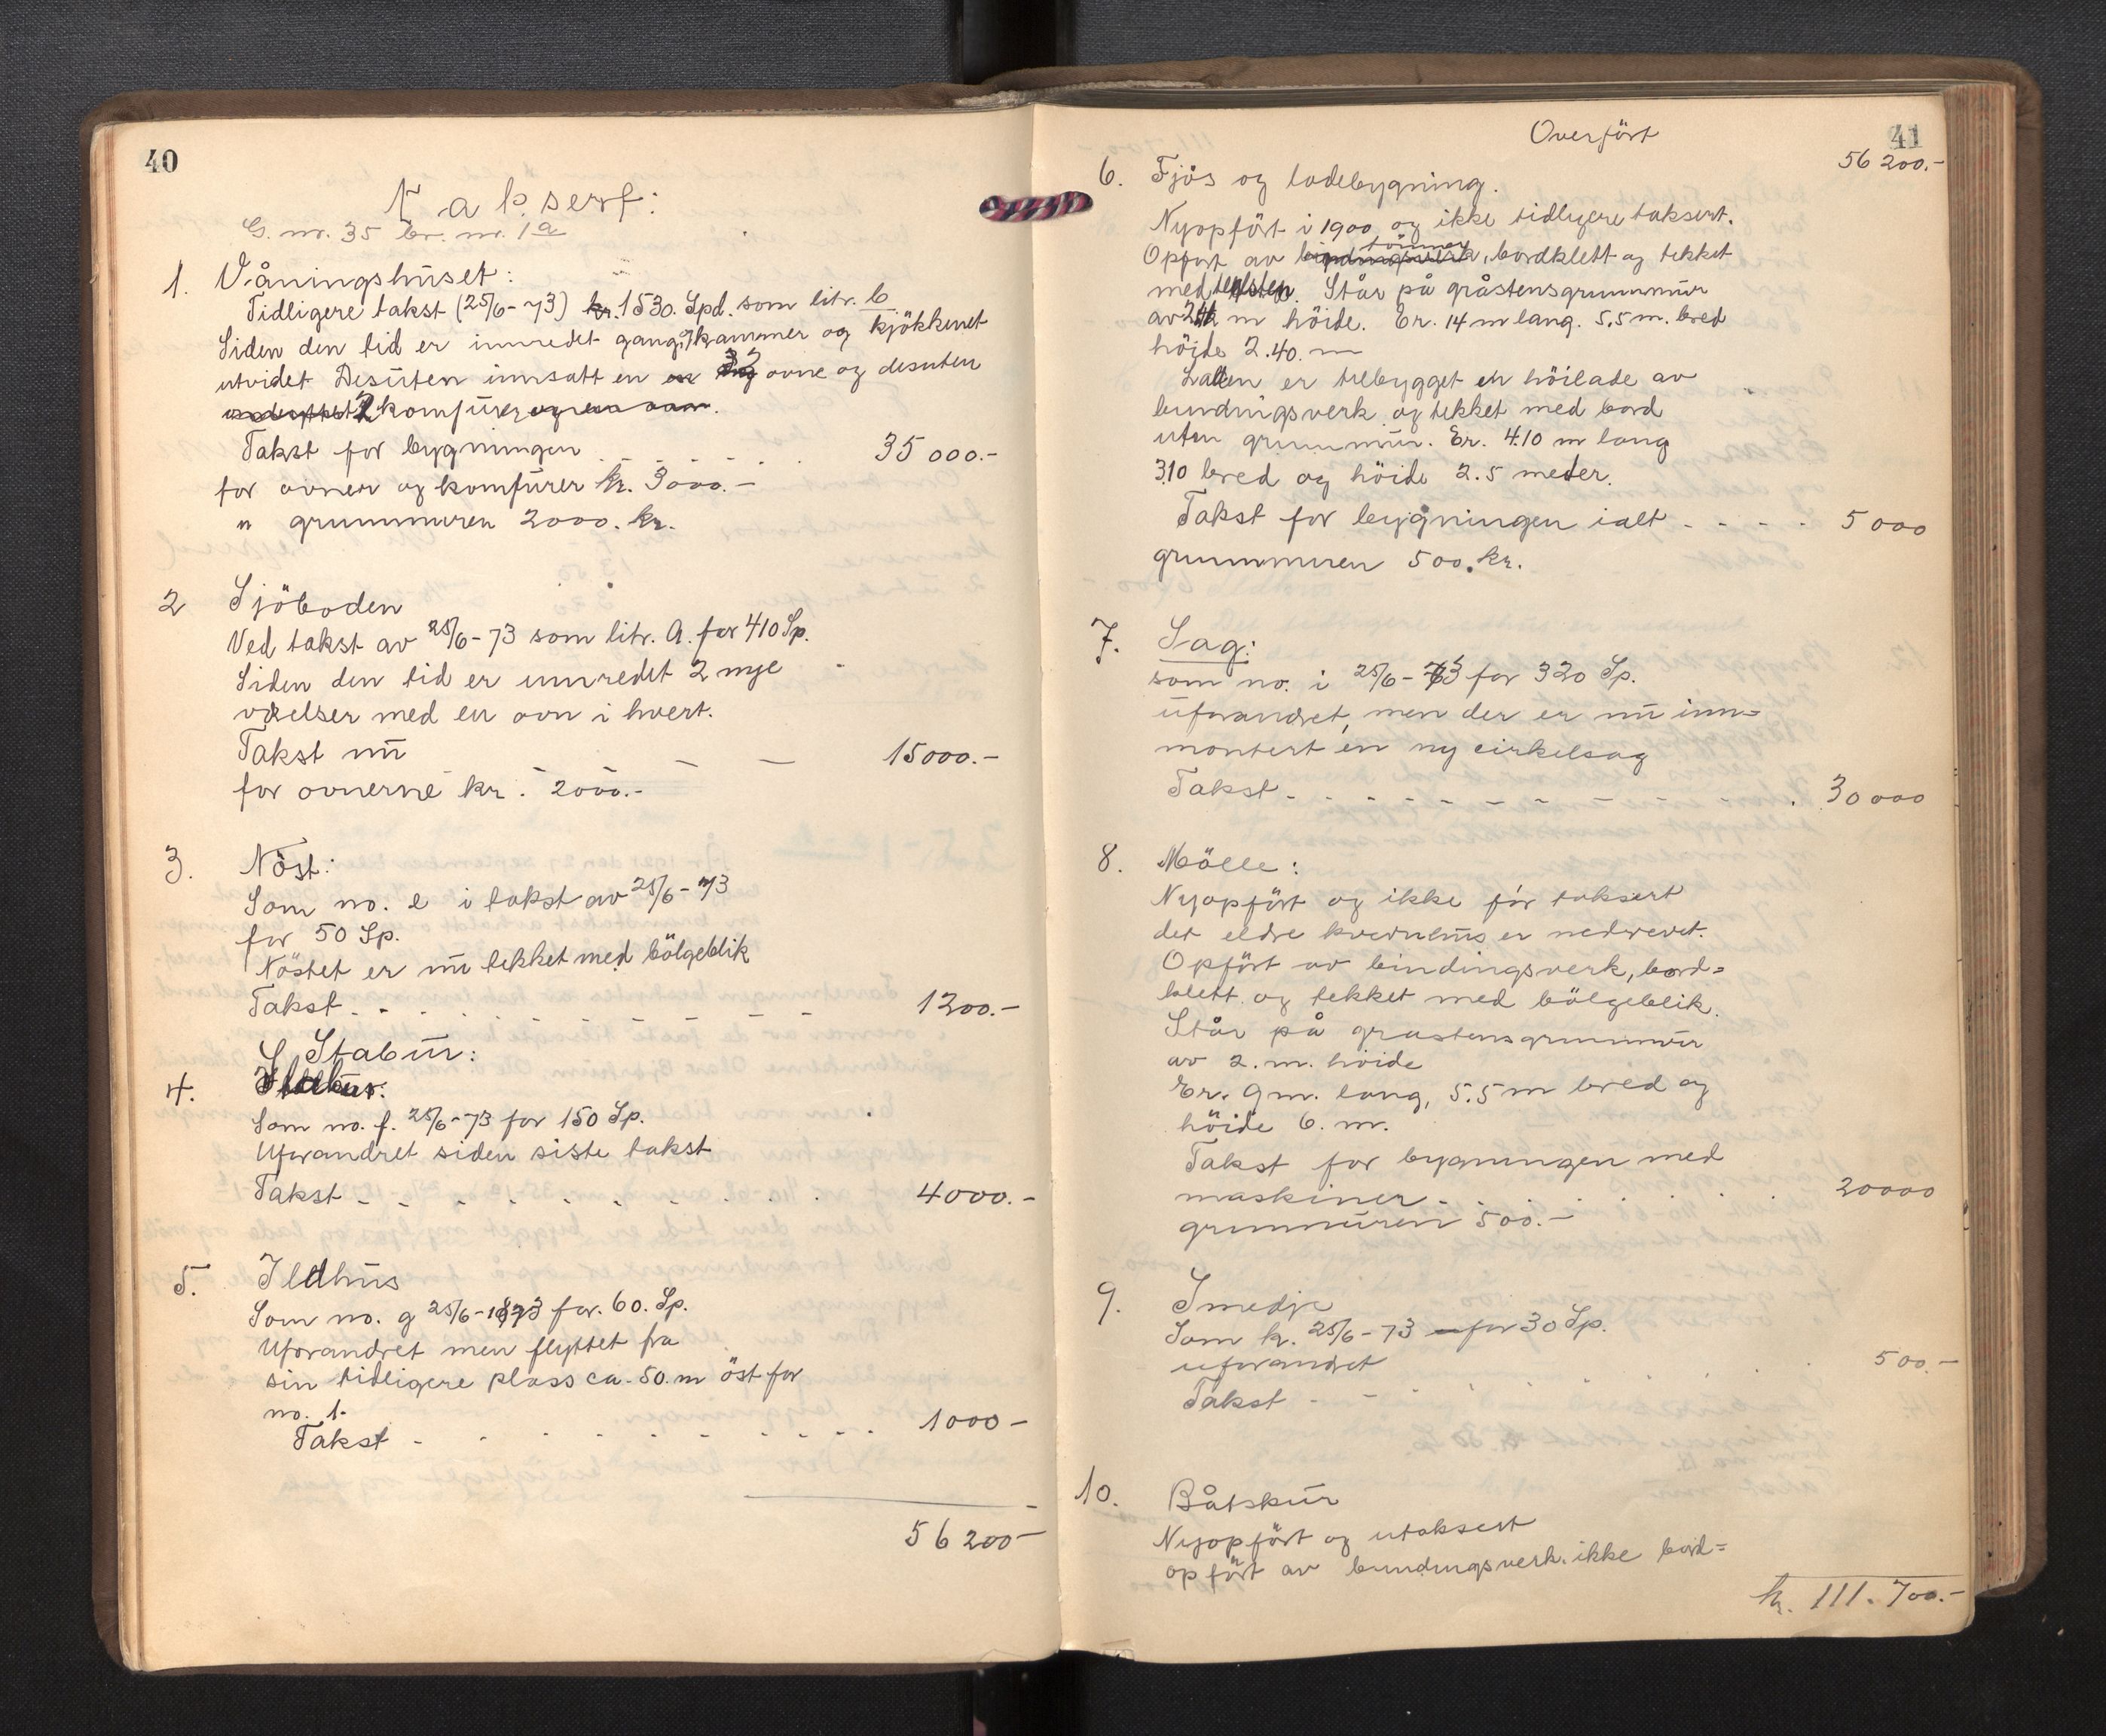 40
Takserf:
G. nr. 35 br. nr. 1a
1. Våningshuset:
Tidligere takst (25/6-73) kr. 1530. Spd. som litr. b
Siden den tid er innredet gang, kammer og kjökkenet
utvidet Desuten innsatt en ovne og desuten
2 komfürer og en ovn.
Takst for bygningen . . . . . . 35 000.-
for ovner og komfürer kr. 3000.-
" grunnmuren 2000. kr.
2 Sjöboden
Ved takst av 25/6-73 som litr. A. for 410 Sp.
Siden den tid er innredet 2 nye
værelser med en ovn i hvert.
Takst nu - - - 15000.-
for ovnerne kr. 2000.-
3. Nöst:
Som no. e i takst av 25/6-73
for 50 Sp.
Nöstet er nu tekket med bölgeblik
Takst - - - - - - - 1200.-
Stabur:
4.
Som no. f. 25/6-73 for 150 Sp.
Uforandret siden siste takst
Takst - - - - - - 4000.-
5. Ildhus
Som no. g 25/6-1873 for. 60. Sp.
Uforandret men flyttet fra
sin tidligere plass ca. 50. m öst for
no. 1.
Takst - - - - - - - 1000-
56 200-
41
Overfört
56 200.-
6. Fjös og ladebygning.
Nyopfört i 1900 og ikke tidligere taksert.
tömmer
Opfört av bindingsverk, bordklett og tekket
med teglsten. Står på gråstensgrunnmur
av 2 m höide. Er. 14 m lang. 5.5 m. bred
höide 2.40. m
Laden er tilbygget en höilade av
bindingsverk og tekket med bord
uten grunnmur. Er. 4.10 m lang
3.10 bred og höide 2.5 meter.
Takst for bygningen ialt - - - - 5 000
grunnmuren 500. kr.
7. Sag:
som no. i 25/6-73 for 320 Sp.
uforandret, men der er nu inn=
montert en ny cirkelsag
Takst - - - - - - - - 30 000
8. Mölle:
Nyopfört og ikke för taksert
det eldre kvernhus er nedrevet.
Opfört av bindingsverk, bord=
klett og tekket med bölgeblik.
Står på gråstensgrunnmur
av 2. m. höide
Er. 9 m. lang, 5.5 m bred og
höide 6. m.
Takst for bygningen med
maskiner - . . . . . . 20000
grunnmuren 500.-
9. Smedje
Som k. 25/6-73 for 30 Sp.
uforandret
Takst - - - - - - 500.-
10. Båtskur
Nyopfört og utaksert
opfört av bindingsverk, ikke bord=
kr. 111.700.-